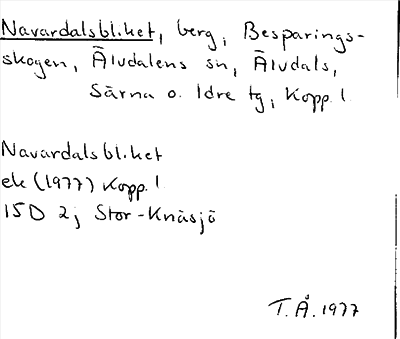 Navardalsbliket, berg, Besparings-
skogen, Älvdalens sn, Älvdals,
Särna o. Idre tg, Kopp. l.
Navardalsbliket
ek (1977) Kopp. l.
15D 2j Stor-Knäsjö
T.Å. 1977